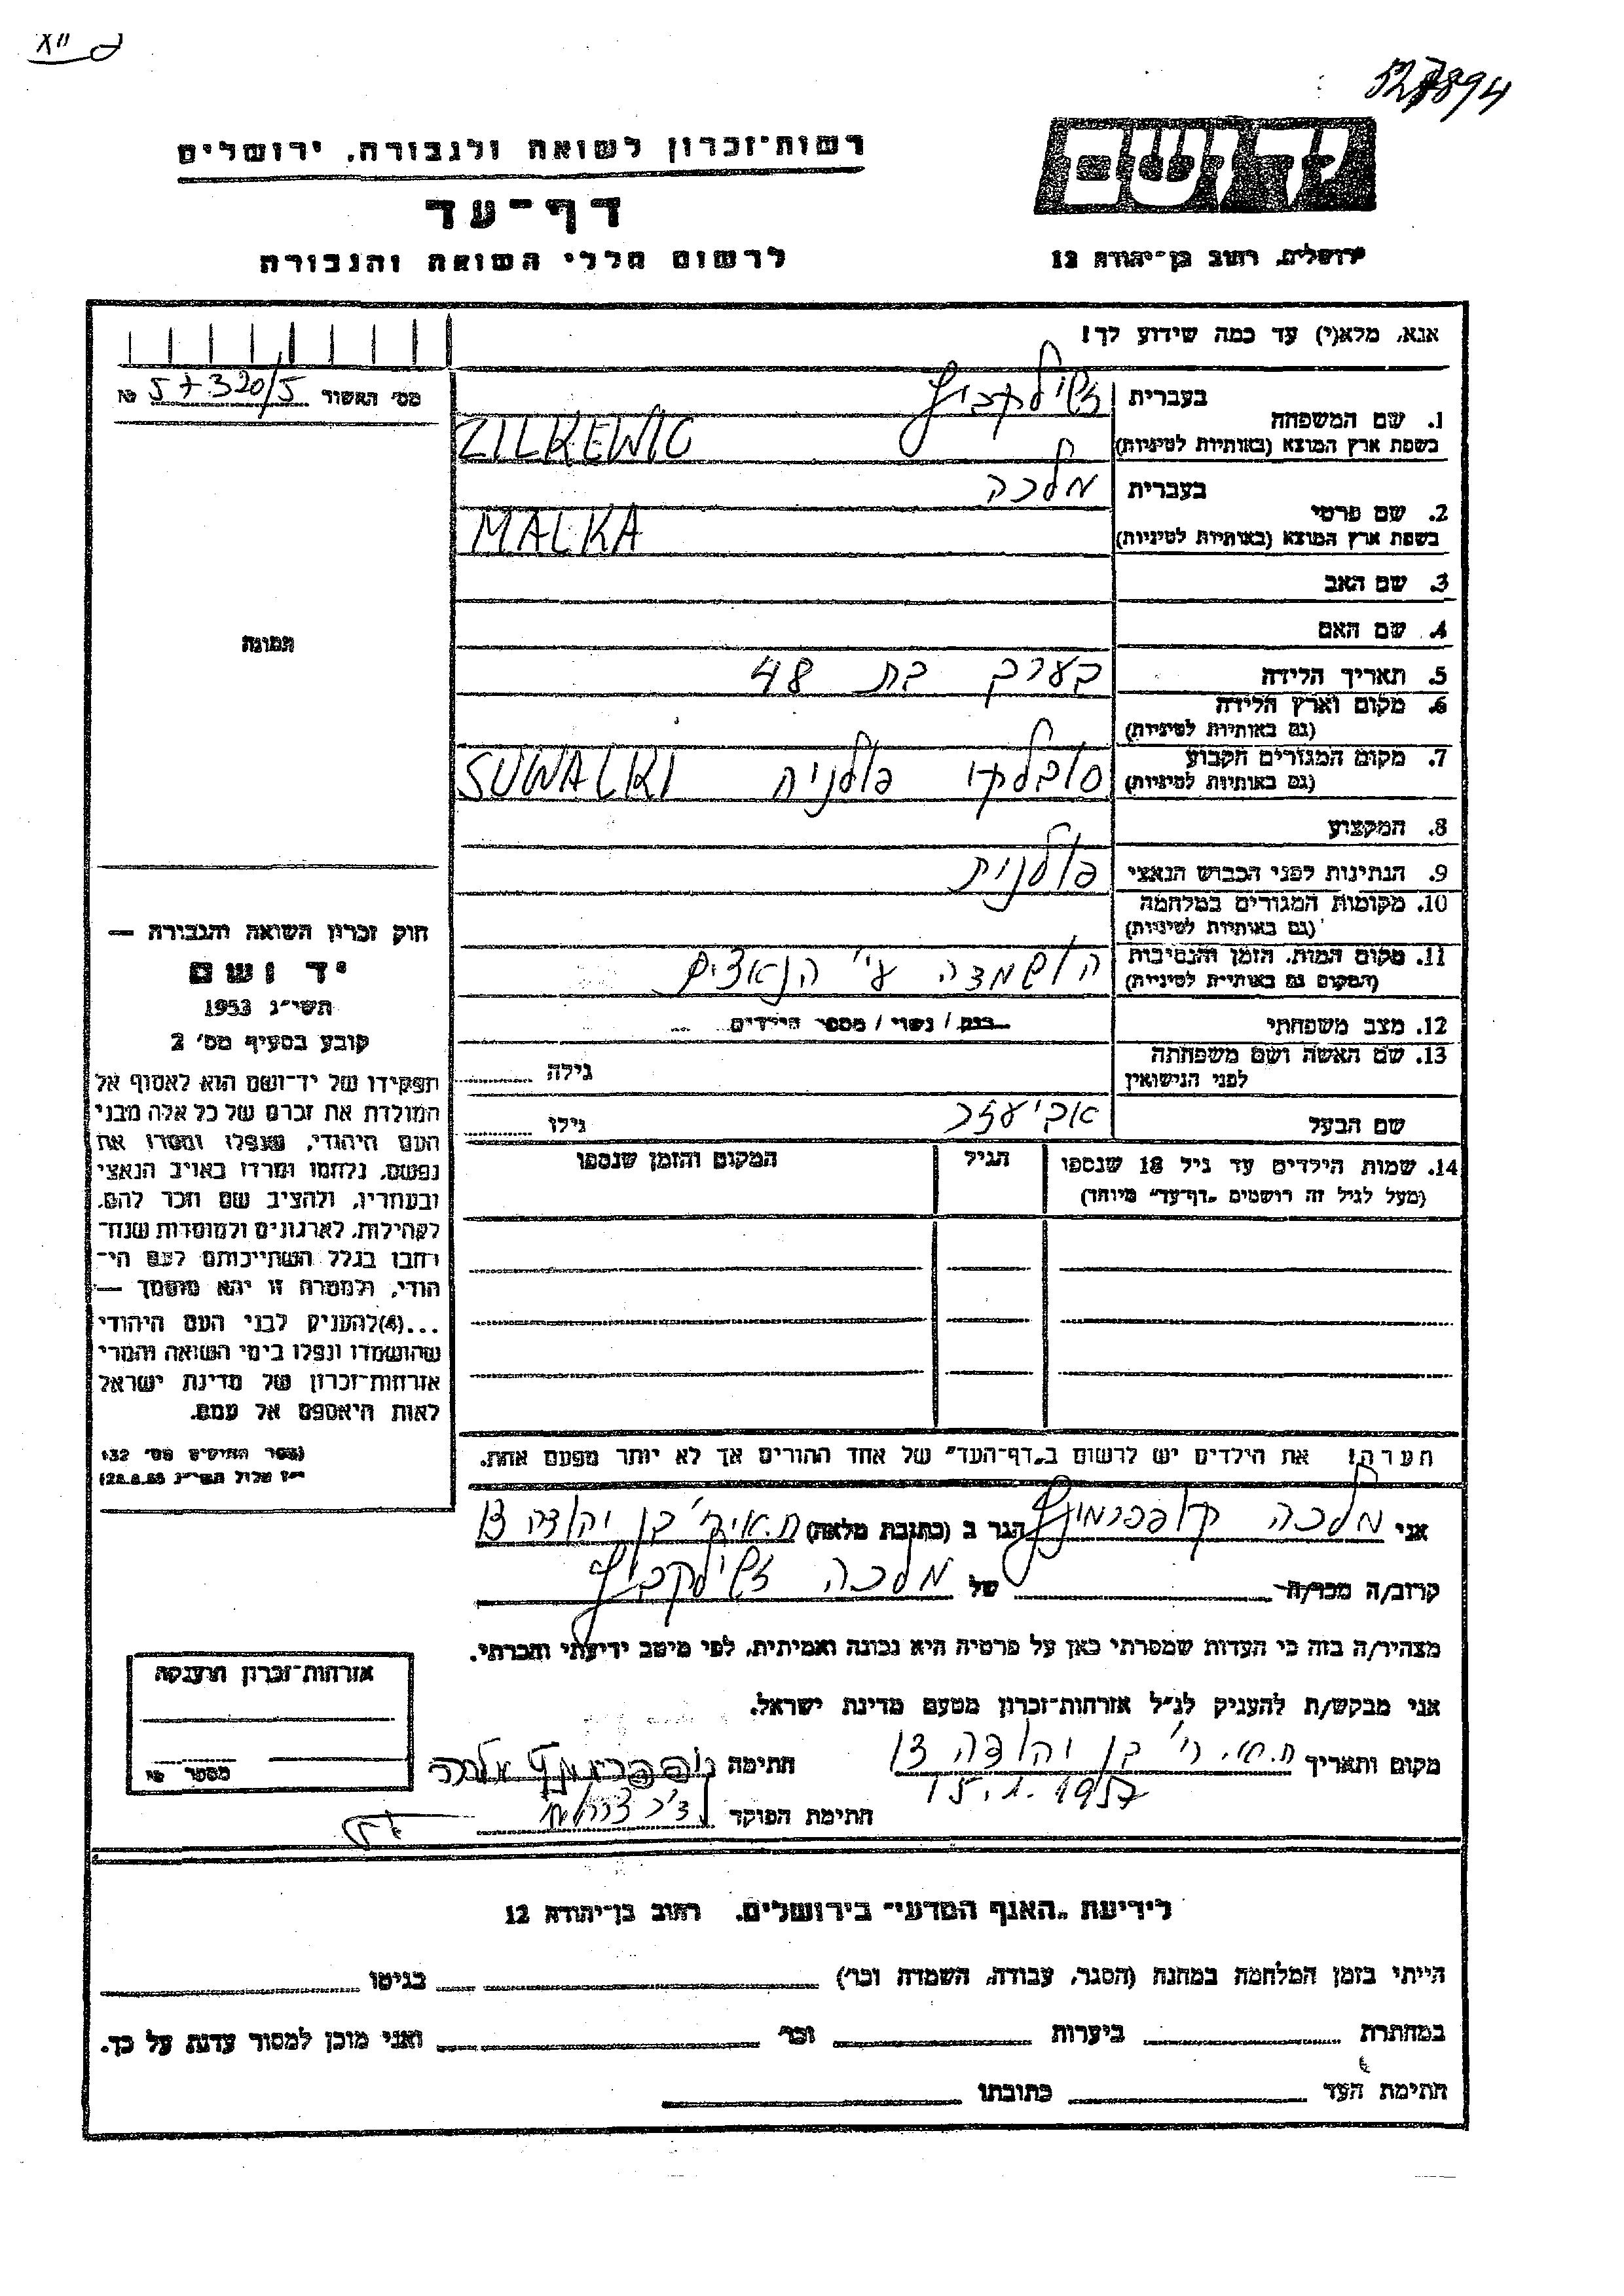 527894
יד ושם
רשות־זכרון לשואה ולגבורה, ירושלים
דף־עד
לרשום חללי השואה והגבורה
ירושלים, רחוב בן־יהודה 12
אנא, מלא(י) עד כמה שידוע לך!
מס' האשור 57320/5
1. שם המשפחה
בעברית זשילקביץ
בשפת ארץ המוצא (באותיות לטיניות) ZILKEWIC
2. שם פרטי
בעברית מלכה
בשפת ארץ המוצא (באותיות לטיניות) MALKA
3. שם האב
4. שם האם
5. תאריך הלידה בערך בת 48
6. מקום וארץ הלידה
(גם באותיות לטיניות)
7. מקום המגורים הקבוע סובלקי פולניה SUWALKI
(גם באותיות לטיניות)
8. המקצוע
9. הנתינות לפני הכבוש הנאצי פולנית
10. מקומות המגורים במלחמה
(גם באותיות לטיניות)
11. מקום המות, הזמן והנסיבות הושמדה ע"י הנאצים
(המקום גם באותיות לטיניות)
12. מצב משפחתי רווק / נשוי / מספר הילדים
13. שם האשה ושם משפחתה
לפני הנישואין גילה
שם הבעל אביעזר גילו
14. שמות הילדים עד גיל 18 שנספו הגיל המקום והזמן שנספו
(מעל לגיל זה רושמים "דף־עד" מיוחד)
תמונה
חוק זכרון השואה והגבורה —
יד ושם
תשי"ג 1953
קובע בסעיף מס' 2
תפקידו של יד־ושם הוא לאסוף אל
המולדת את זכרם של כל אלה מבני
העם היהודי, שנפלו ומסרו את
נפשם, נלחמו ומרדו באויב הנאצי
ובעוזריו, ולהציב שם וזכר להם,
לקהילות, לארגונים ולמוסדות שנח־
רבו בגלל השתייכותם לעם הי־
הודי, ולמטרה זו יהא מוסמך —
...(4) להעניק לבני העם היהודי
שהושמדו ונפלו בימי השואה והמרי
אזרחות־זכרון של מדינת ישראל
לאות היאספם אל עמם.
(ספר החוקים מס' 132
י"ז אלול תשי"ג 28.8.53)
הערה! את הילדים יש לרשום ב"דף־העד" של אחד ההורים אך לא יותר מפעם אחת.
אני מלכה הגר ב (כתובת מלאה) בן יהודה
קרוב/ה מכר/ה של מלכה זשילקביץ
מצהיר/ה בזה כי העדות שמסרתי כאן על פרטיה היא נכונה ואמיתית, לפי מיטב ידיעתי והכרתי.
אני מבקש/ת להעניק לנ"ל אזרחות־זכרון מטעם מדינת ישראל.
מקום ותאריך בן יהודה
15.1.1957
חתימה
חתימת הפוקד
אזרחות־זכרון הוענקה
מספר
לידיעת "האגף המדעי" בירושלים, רחוב בן־יהודה 12
הייתי בזמן המלחמה במחנה (הסגר, עבודה, השמדה וכו') בגיטו
במחתרת ביערות וכו' ואני מוכן למסור עדות על כך.
חתימת העד כתובתו